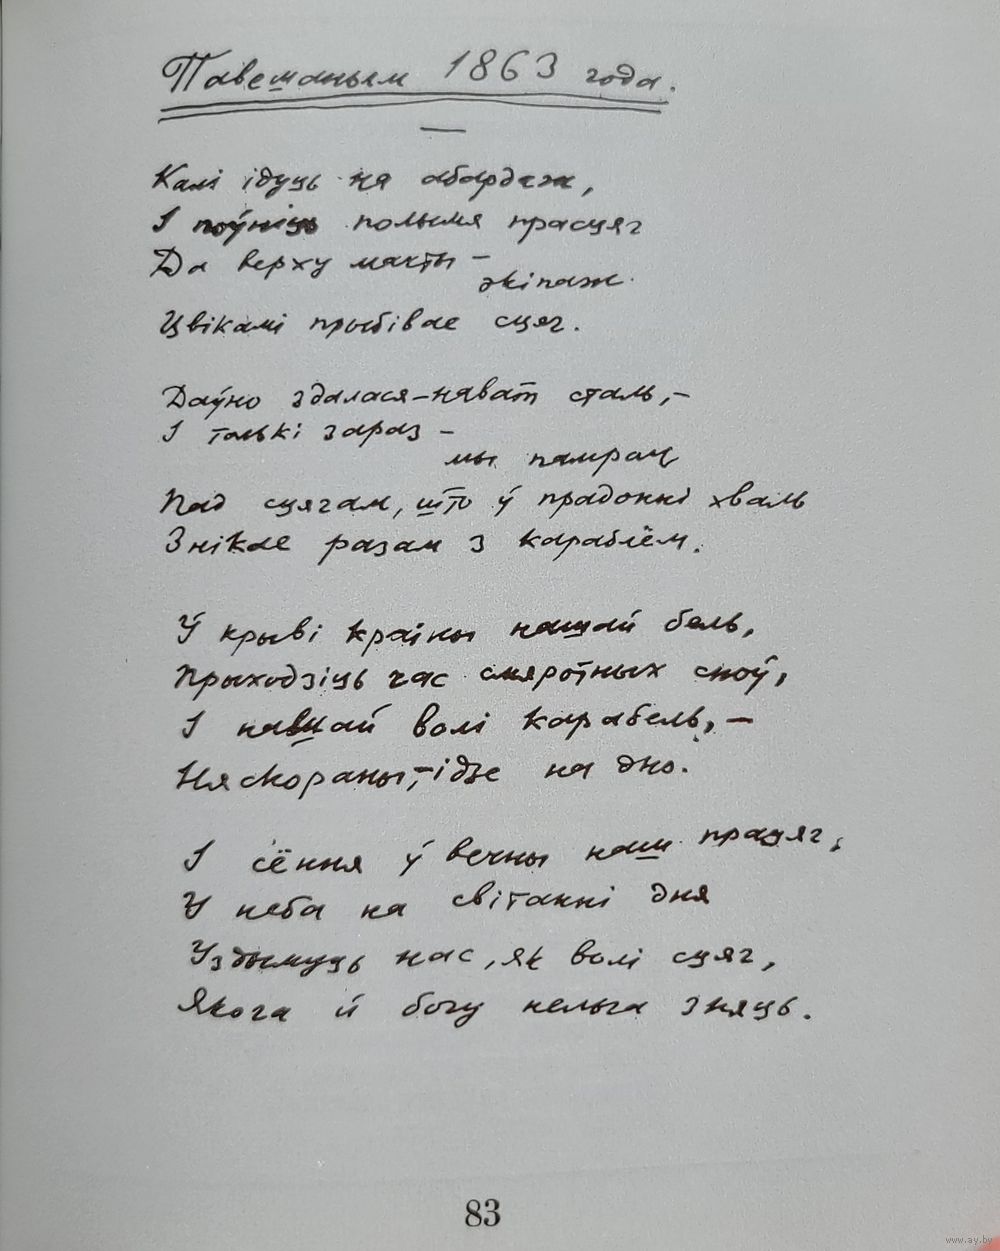 Павешаным 1863 года.
Калі ідуць на абардаж,
І поўніць полымя прасцяг
Да верху мачты –
экіпаж
Цвікамі прыбівае сцяг.
Даўно здалася – нават сталь, –
І толькі зараз –
мы памром
Пад сцягам, што ў прадонні хваль
Знікае разам з караблём.
Ў крыві краіны нашай бель,
Прыходзіць час смяротных сноў,
І нашай волі карабель, –
Няскораны, – ідзе на дно.
І сёння ў вечны наш працяг,
У неба на світанні дня
Уздымуць нас, як волі сцяг,
Якога й богу нельга зняць.
83
www.ay.by